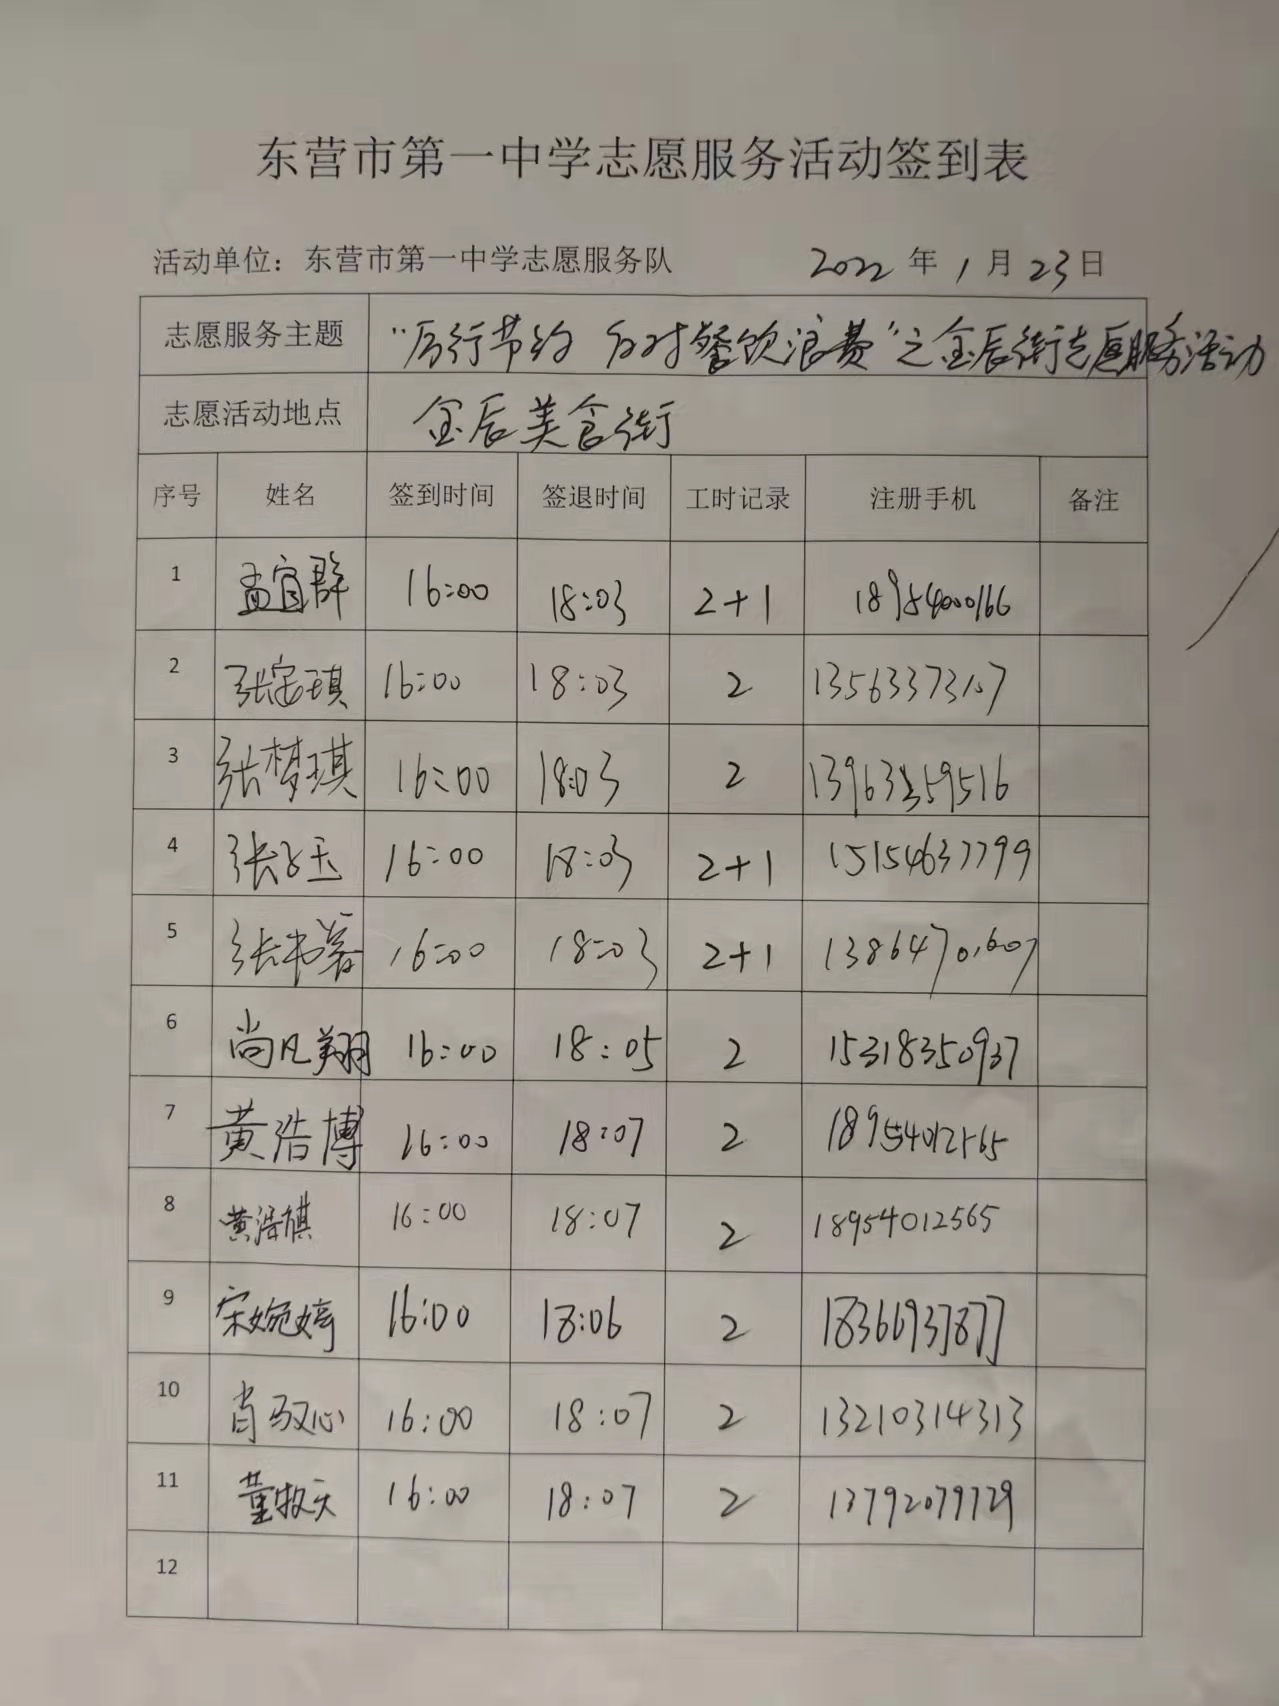 东营市第一中学志愿服务活动签到表
活动单位：东营市第一中学志愿服务队 2022 年 1 月 23 日
志愿服务主题 “厉行节约 反对餐饮浪费”之金辰街志愿服务活动
志愿活动地点 金辰美食街
序号 姓名 签到时间 签退时间 工时记录 注册手机 备注
1 孟宜群 16:00 18:03 2+1 18954000166
2 16:00 18:03 2 13563373107
3 张梦琪 16:00 18:03 2 13963359516
4 张子玉 16:00 18:03 2+1 15154637799
5 16:00 18:03 2+1 13864701607
6 尚凡翔 16:00 18:05 2 15318350937
7 黄浩博 16:00 18:07 2 18954012565
8 黄浩祺 16:00 18:07 2 18954012565
9 宋婉婷 16:00 18:06 2 18366937877
10 肖驭心 16:00 18:07 2 13210314313
11 董牧天 16:00 18:07 2 13792079729
12